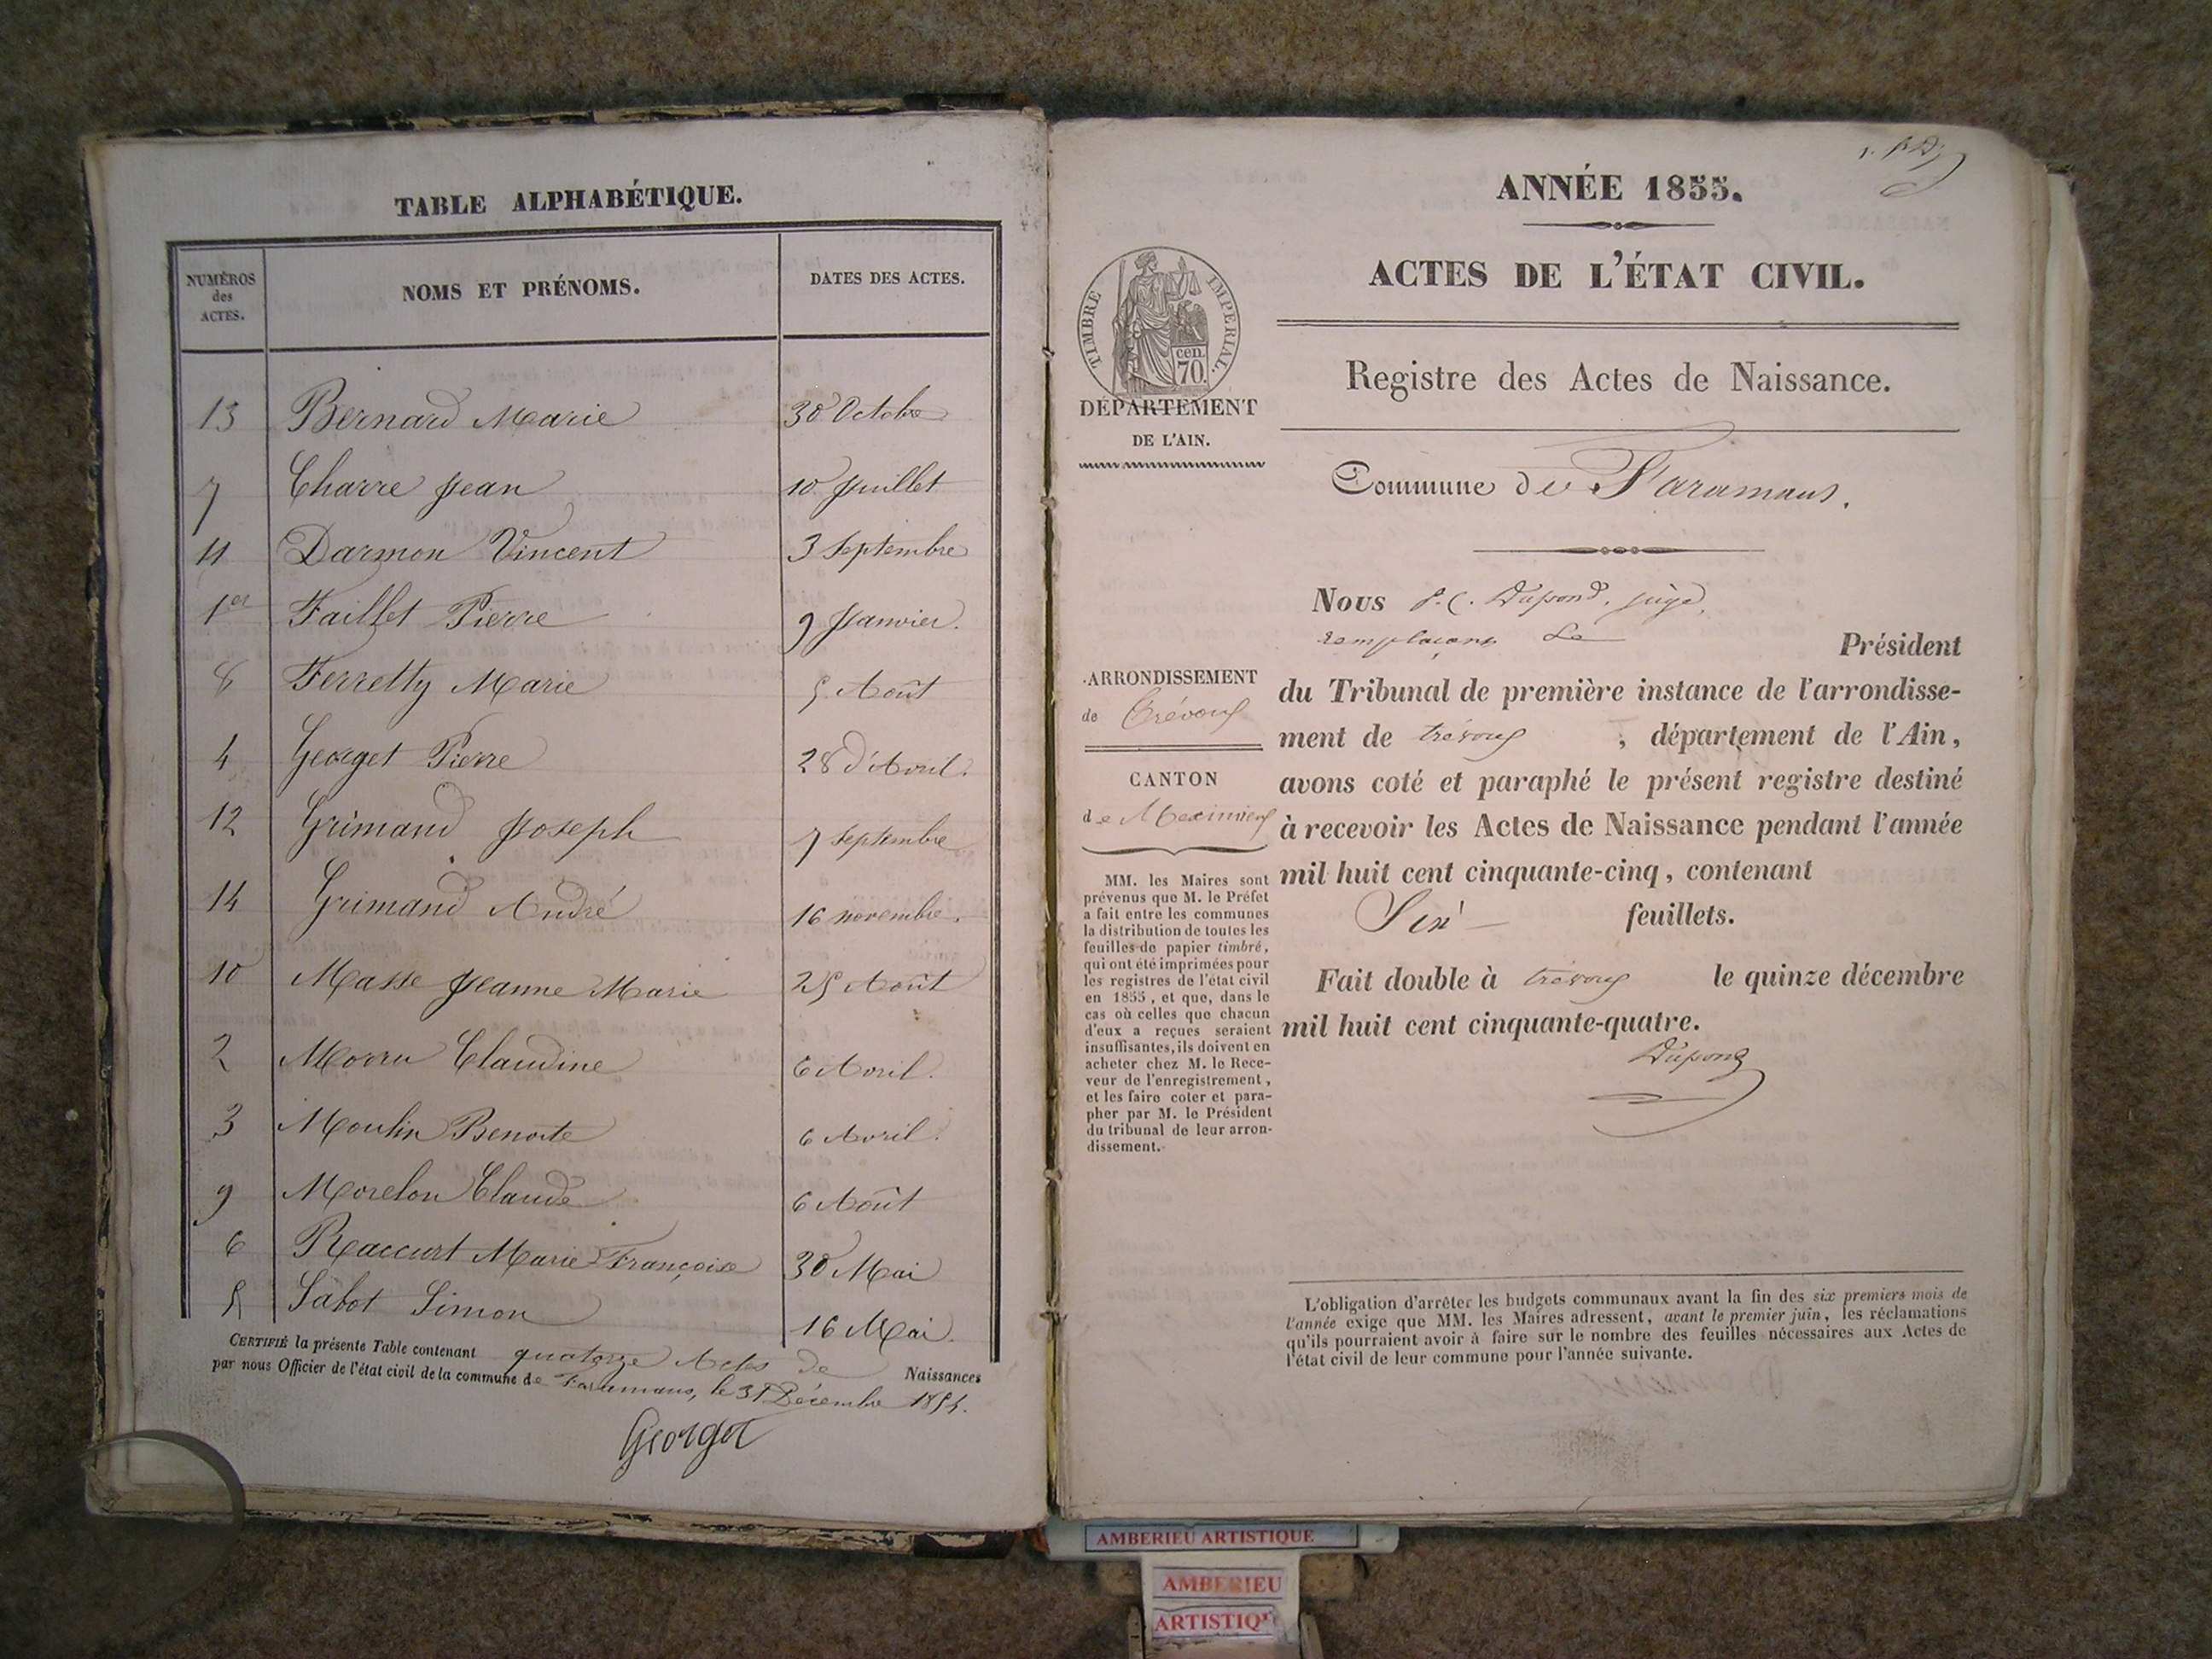 TABLE ALPHABÉTIQUE.
NUMÉROS des ACTES.
NOMS ET PRÉNOMS.
DATES DES ACTES.
13 Bernard Marie 30 Octobre
7 Charre Jean 10 Juillet
11 Darmon Vincent 3 Septembre
1er Faillet Pierre 9 Janvier.
8 Ferretty Marie 5 Août
4 Georget Pierre 28 d'Avril.
12 Grimand Joseph 7 Septembre
14 Grimand André 16 novembre.
10 Masse Jeanne Marie 25 Août
2 Morru Claudine 6 Avril.
3 Moulin Benoite 6 Avril.
9 Morelon Claude 6 Août
6 Raccurt Marie Françoise 30 Mai
5 Sabot Simon 16 Mai.
CERTIFIÉ la présente Table contenant quatorze Actes de Naissances
par nous Officier de l'état civil de la commune de Faramans, le 31 Décembre 1854.
Georget
ANNÉE 1855.
ACTES DE L'ÉTAT CIVIL.
TIMBRE IMPERIAL.
cen.
70.
DÉPARTEMENT
DE L'AIN.
Registre des Actes de Naissance.
Commune de Faramans.
Nous P. C. Dupond, juge,
remplaçant Le Président
ARRONDISSEMENT
de Trévoux
CANTON
de Meximieux
du Tribunal de première instance de l'arrondisse-
ment de trévoux, département de l'Ain,
avons coté et paraphé le présent registre destiné
à recevoir les Actes de Naissance pendant l'année
mil huit cent cinquante-cinq, contenant
Six feuillets.
Fait double à trévoux le quinze décembre
mil huit cent cinquante-quatre.
Dupond
MM. les Maires sont
prévenus que M. le Préfet
a fait entre les communes
la distribution de toutes les
feuilles de papier timbré,
qui ont été imprimées pour
les registres de l'état civil
en 1855, et que, dans le
cas où celles que chacun
d'eux a reçues seraient
insuffisantes, ils doivent en
acheter chez M. le Rece-
veur de l'enregistrement,
et les faire coter et para-
pher par M. le Président
du tribunal de leur arron-
dissement.
L'obligation d'arrêter les budgets communaux avant la fin des six premiers mois de
l'année exige que MM. les Maires adressent, avant le premier juin, les réclamations
qu'ils pourraient avoir à faire sur le nombre des feuilles nécessaires aux Actes de
l'état civil de leur commune pour l'année suivante.
AMBERIEU ARTISTIQUE
AMBERIEU
ARTISTIQ